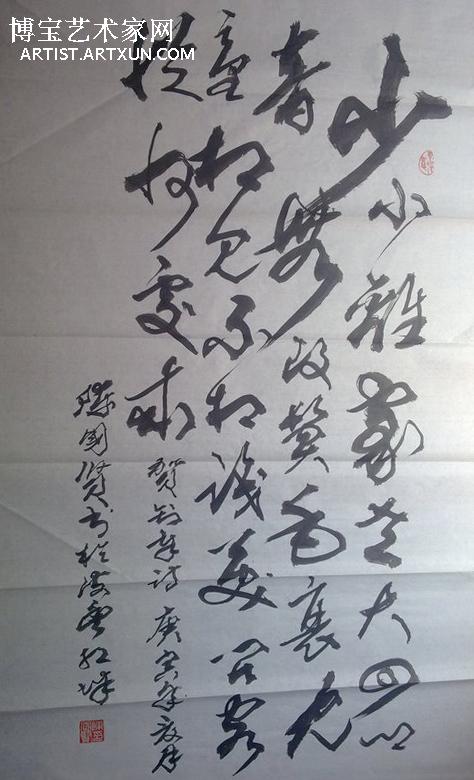 博宝艺术家网
ARTIST.ARTXUN.COM
少小離家老大回鄉
音無改鬢毛衰兒
童相見不相識笑問客
從何處來
賀知章詩 庚寅年
國賢书於海豐紅城